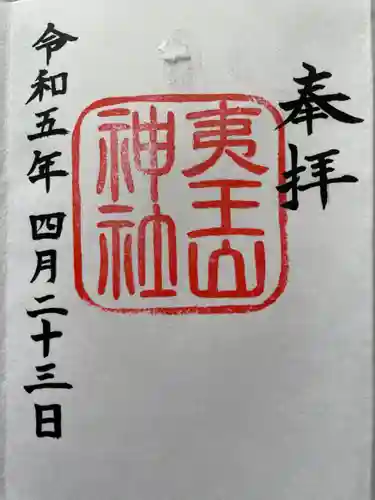 奉拝
夷王山
神社
令和五年四月二十三日